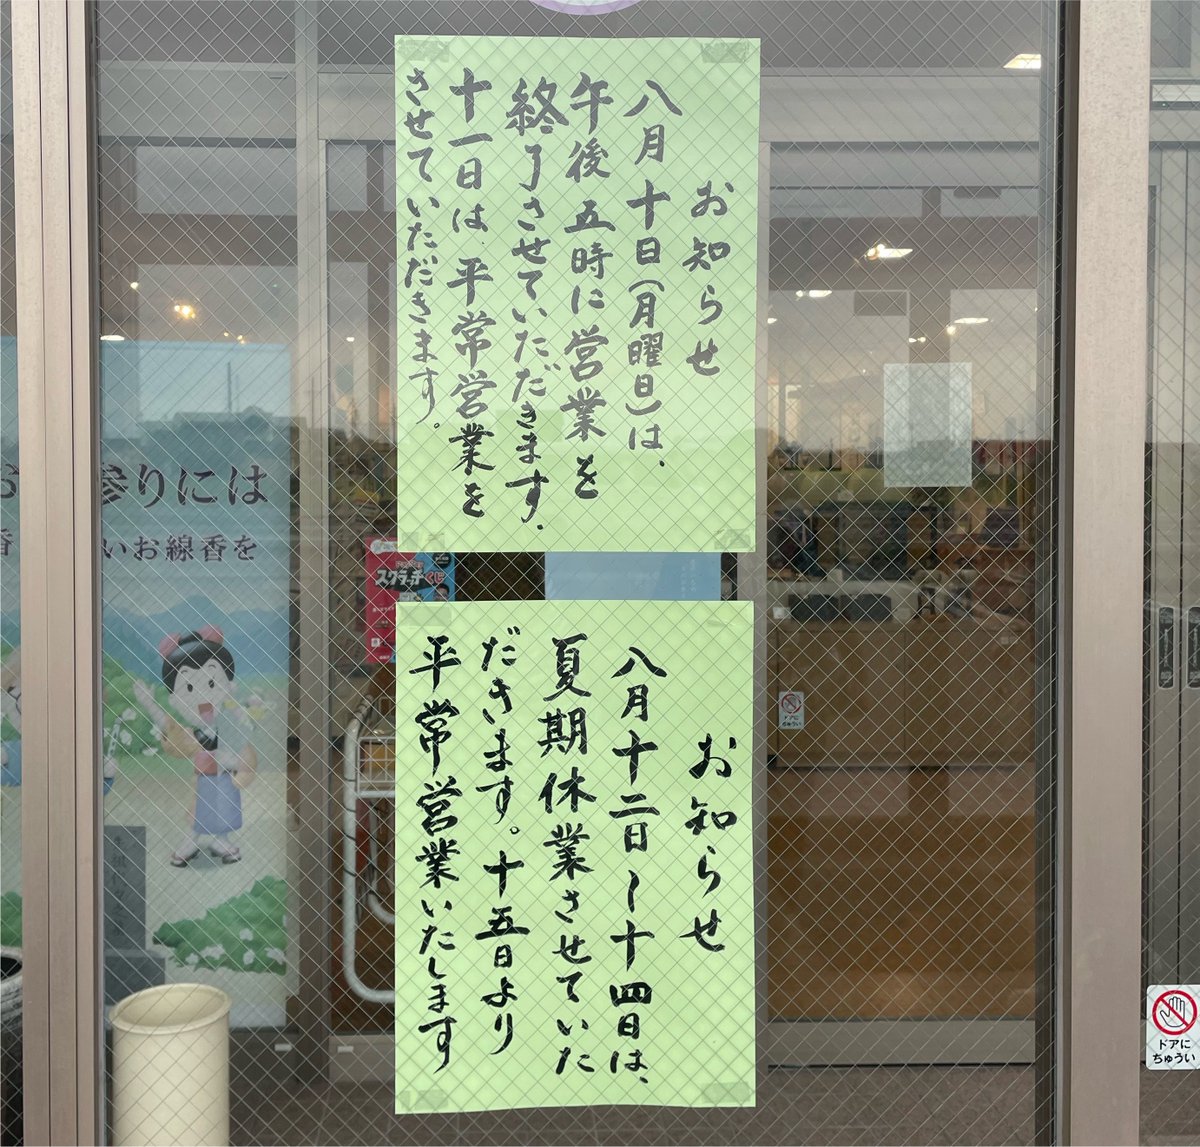 お知らせ
八月十日(月曜日)は、
午後五時に営業を
終了させていただきます。
十一日は、平常営業を
させていただきます。
お知らせ
八月十二日~十四日は、
夏期休業させていた
だきます。十五日より
平常営業いたします
お
参りには
いお線香を
香
スクラッチくじ
ドアに
ちゅうい
ドアに
ちゅうい